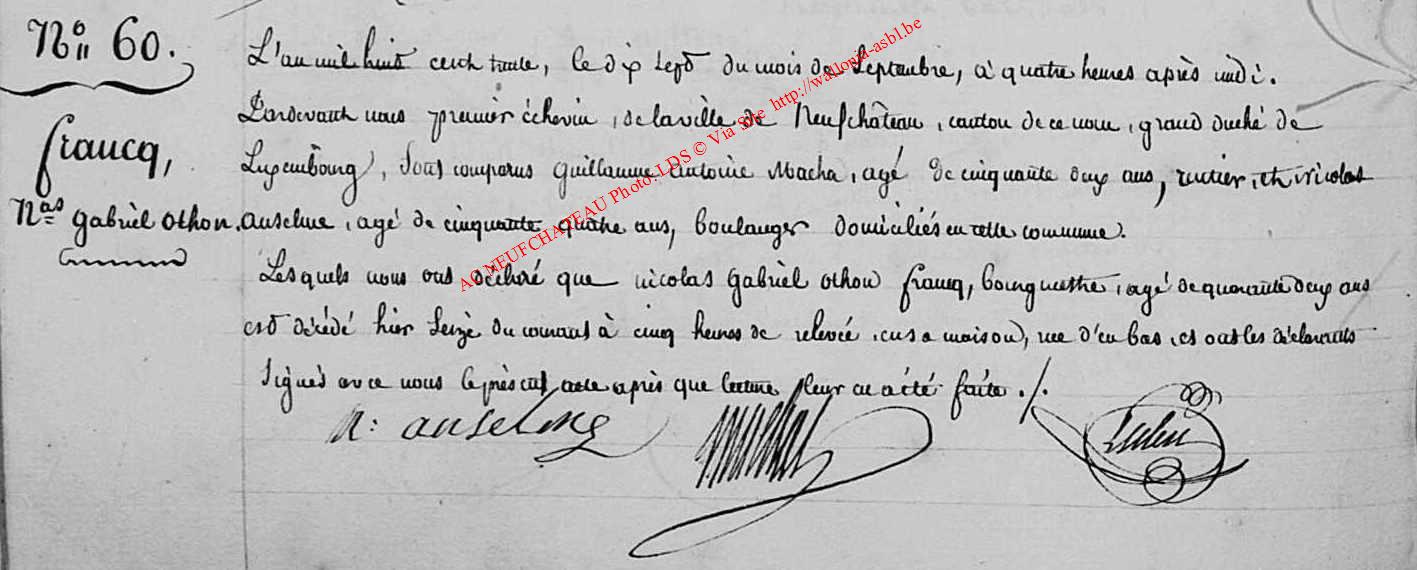 Nº 60.
francq,
Nas gabriel othon.
L'an mil huit cent trente, le dix sept du mois de Septembre, à quatre heures après midi.
Pardevant nous premier échevin, de la ville de Neufchâteau, canton de ce nom, grand duché de
Luxembourg, sont comparus guillaume antoine Macha, agé de cinquante deux ans, rentier, et nicolas
anselme, agé de cinquante quatre ans, boulanger domiciliés en cette commune.
Lesquels nous ont déclaré que nicolas gabriel othon francq, bourguestre, agé de quarante deux ans
est décédé hier seize du courant à cinq heures de relevée, en sa maison, rue d'en bas, et ont les déclarants
signés avec nous le présent acte après que lecture leur en a été faite ./.
N: anselme
AC NEUFCHATEAU Photo: LDS © Via Site http://wallonia-asbl.be